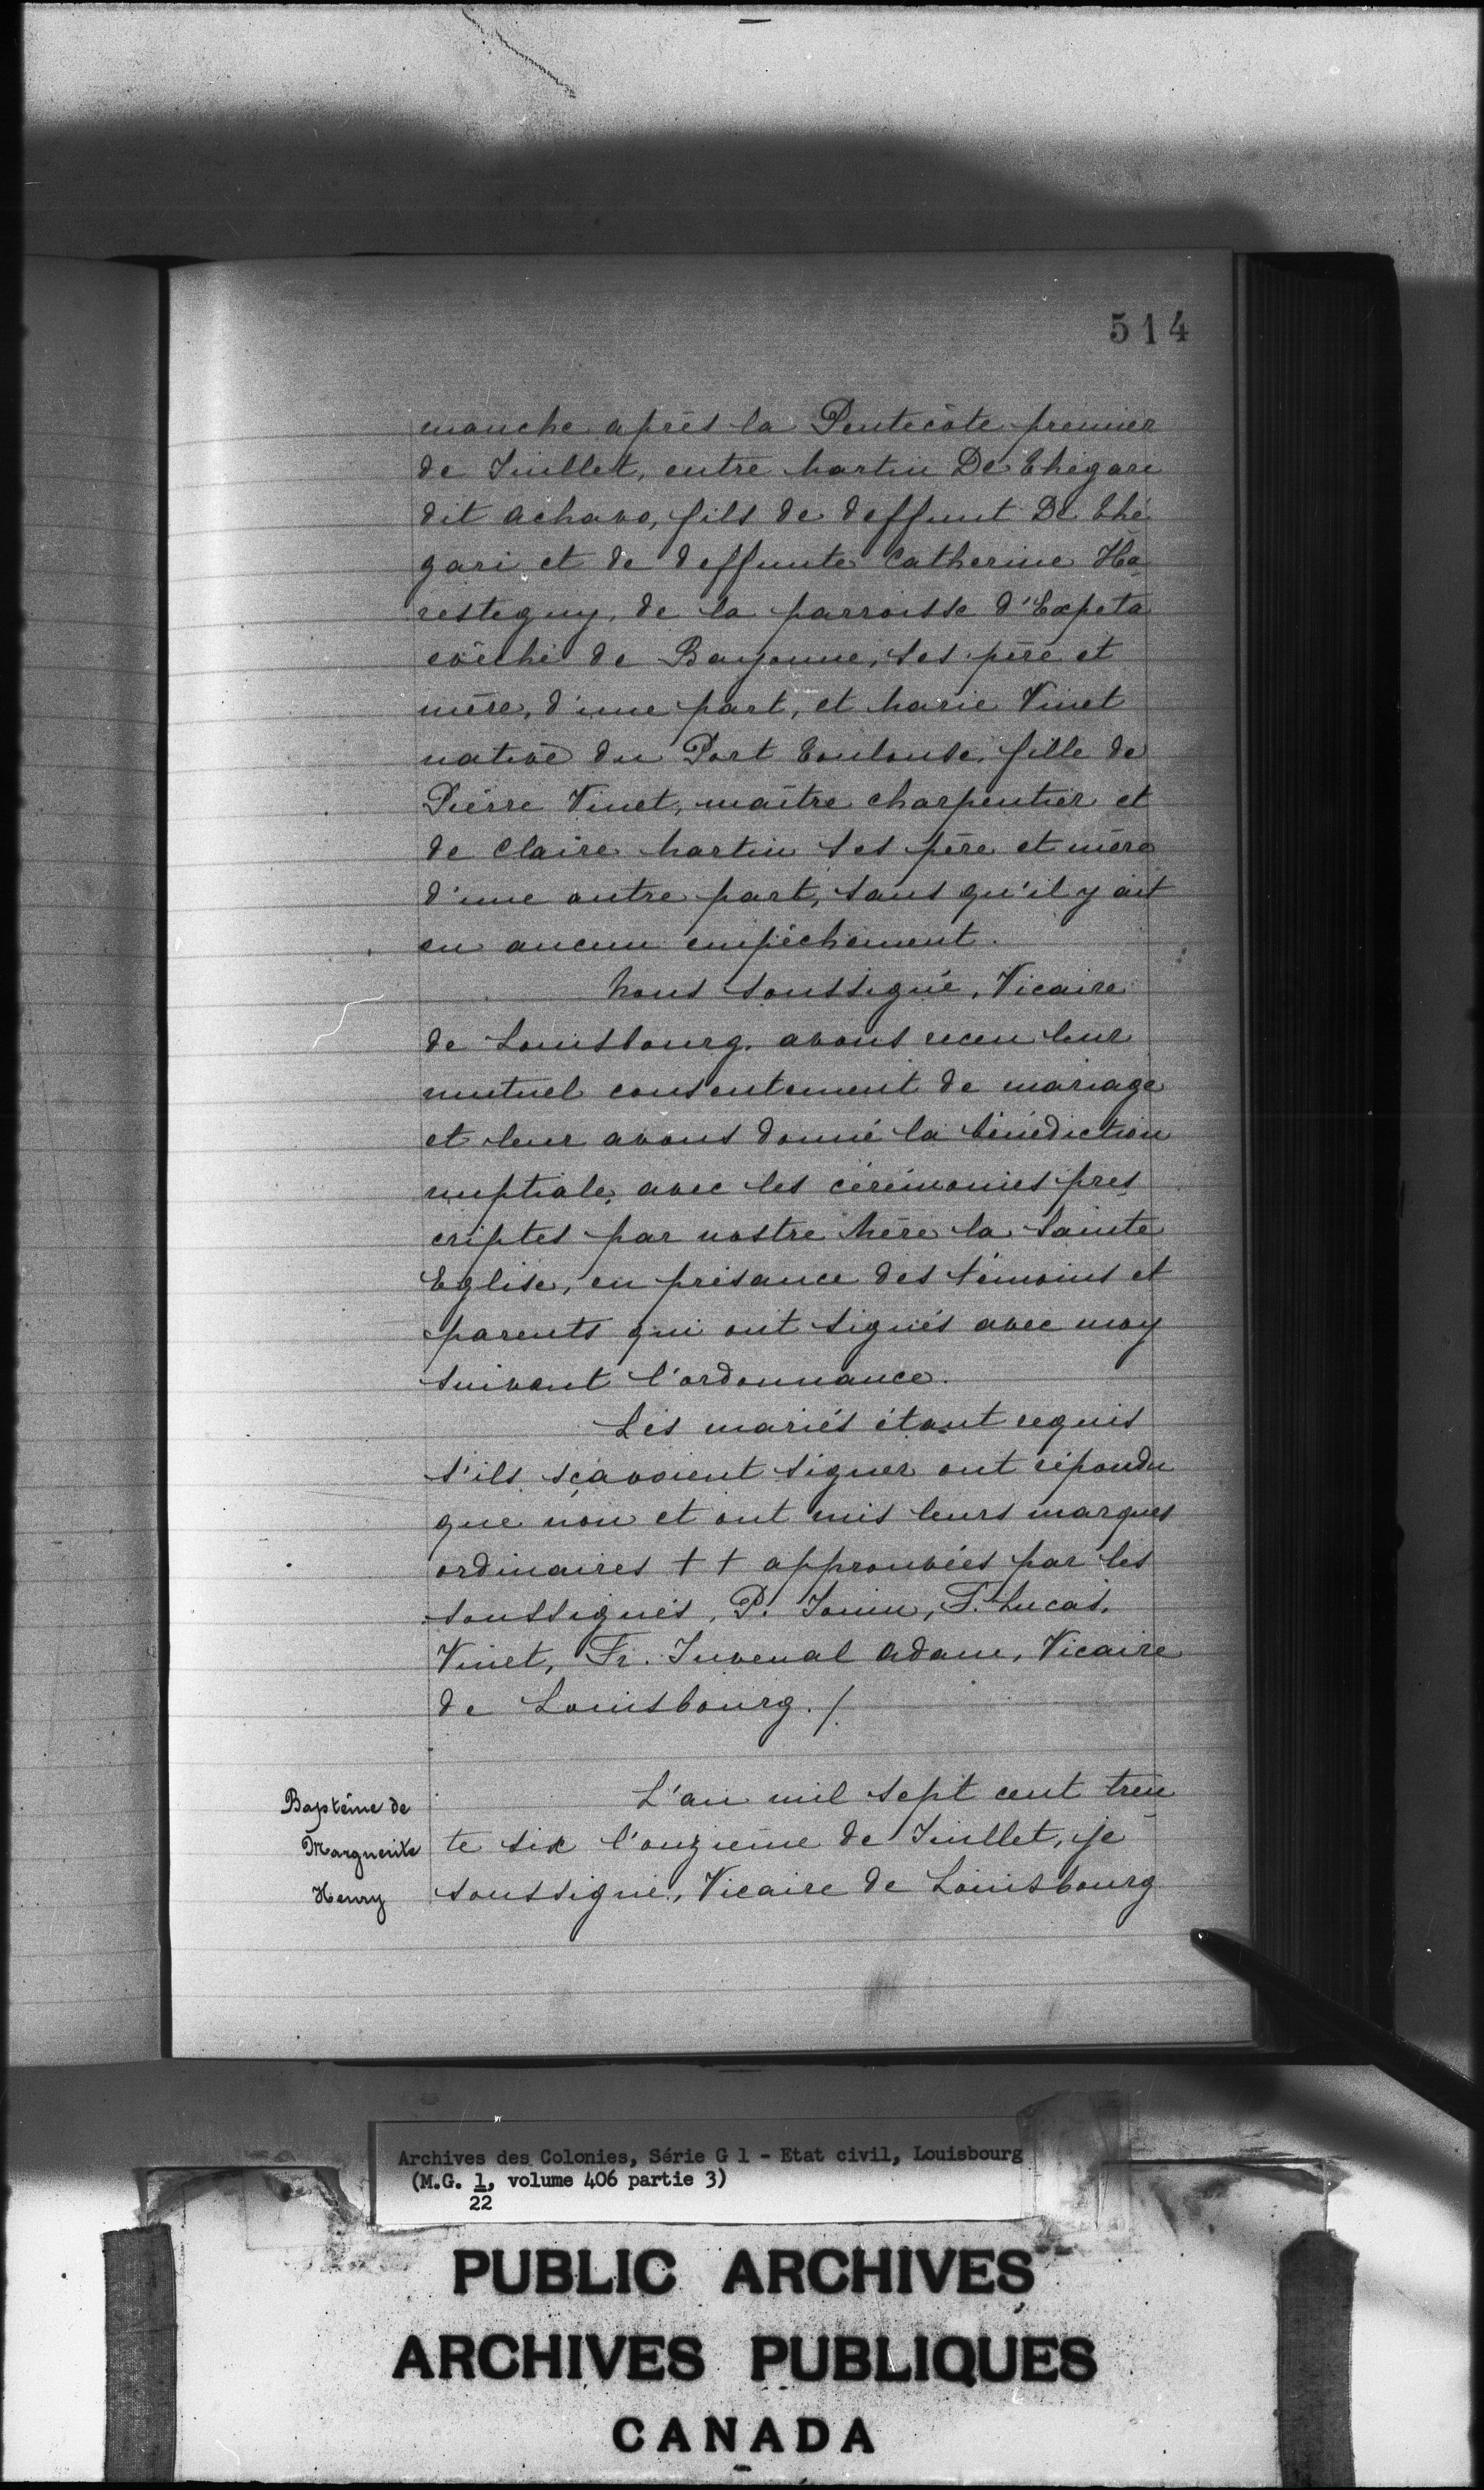 514
manche après la Pentecôte premier
de Juillet, entre Martin De Ehigari
dit Achavo, fils de deffunt De Ehé
gari et de deffunte Catherine Ha-
resteguy, de la parroisse d'Expeta
evêché de Bayonne, ses père et
mère, d'une part, et Marie Vinet
native du Port Toulouse, fille de
Pierre Vinet, maître charpentier et
de Claire Martin ses père et mère
d'une autre part, sans qu'il y ait
eu aucun empêchement.
Nous soussigné, Vicaire
de Louisbourg, avons receu leur
mutuel consentement de mariage
et leur avons donné la bénédiction
nuptiale, avec les cérémonies pres-
criptes par nostre Mère la Sainte
Eglise, en présance des témoins et
parents qui ont signés avec moy
suivant l'ordonnance.
Les mariés étant requis
s'ils sçavoient signer ont répondu
que non et ont mis leurs marques
ordinaires + + approuvées par les
soussignés, P. Jouin, F. Lucas,
Vinet, Fr. Juvenal Adam, Vicaire
de Louisbourg./.
Baptême de
Marguerite
Henry
L'an mil sept cent tren-
te six l'onzième de Juillet, je
soussigné, Vicaire de Louisbourg
Archives des Colonies, Série G 1 - Etat civil, Louisbourg
(M.G. 1, volume 406 partie 3)
22
PUBLIC ARCHIVES
ARCHIVES PUBLIQUES
CANADA